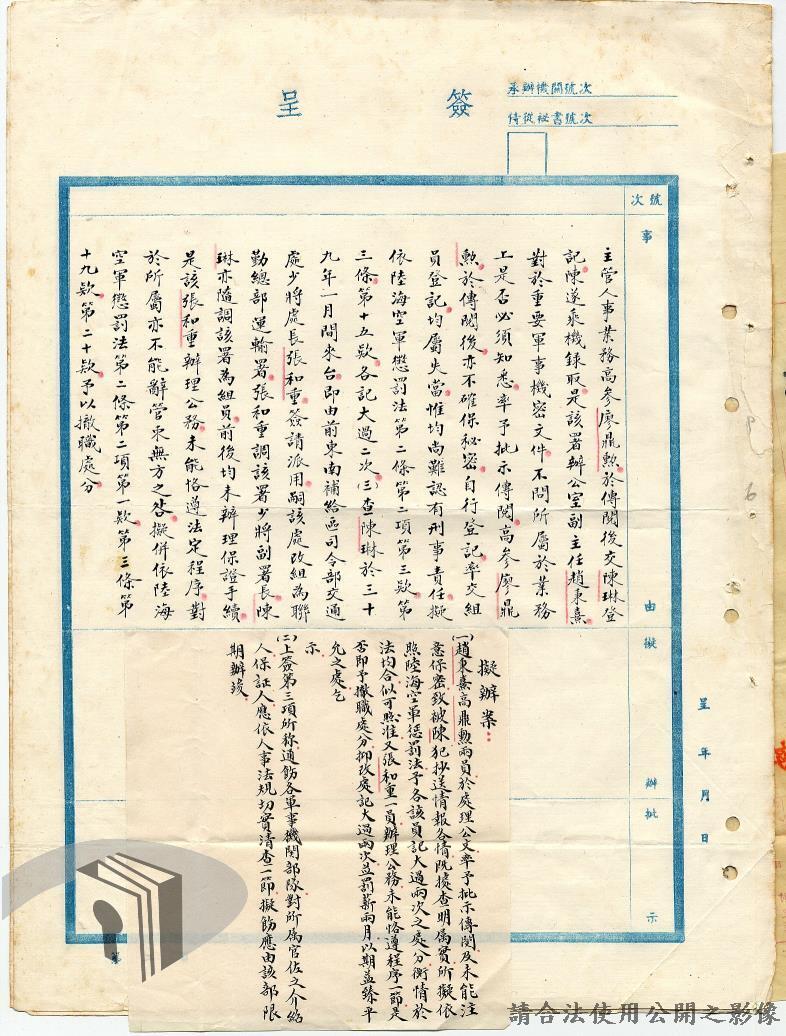 簽呈
承辦機關號次
侍從祕書號次
號次
事由
擬辦
批示
呈 年 月 日
主管人事業務高參廖鼎勲於傳閱後交陳琳登
記陳遂乘機錄取是該署辦公室副主任趙東熹
對於重要軍事機密文件不問所屬於業務
上是否必須知悉率予批示傳閱高參廖鼎
勲於傳閱後亦不確保秘密自行登記率交組
員登記均屬失當惟均尚難認有刑事責任擬
依陸海空軍懲罰法第二條第二項第三款第
三條第十五款各記大過二次(三)查陳琳於三十
九年一月間來台即由前東南補給區司令部交通
處少將處長張和重簽請派用嗣該處改組為聯
勤總部運輸署張和重調該署少將副署長陳
琳亦隨調該署為組員前後均未辦理保證手續
是該張和重辦理公務未能恪遵法定程序對
於所屬亦不能辭管束無方之咎擬併依陸海
空軍懲罰法第二條第二項第一款第三條第
十九款第二十款予以撤職處分
擬辦案：
(一)趙東熹高鼎勲兩員於處理公文率予批示傳閱及未能注
意保密致被陳犯抄送情報各情既據查明屬實所擬依
照陸海空軍懲罰法予各該員記大過兩次之處分衡情於
法均合似可照准又張和重一員辦理公務未能恪遵程序一節是
否即予撤職處分抑改處記大過兩次並罰薪兩月以期並緣平
允之處乞
示
(二)上簽第三項所称通飭各軍事機関部隊對所屬官佐之介紹
人保証人應依人事法規切實清查一節擬飭應由該部限
期辦竣
請合法使用公開之影像